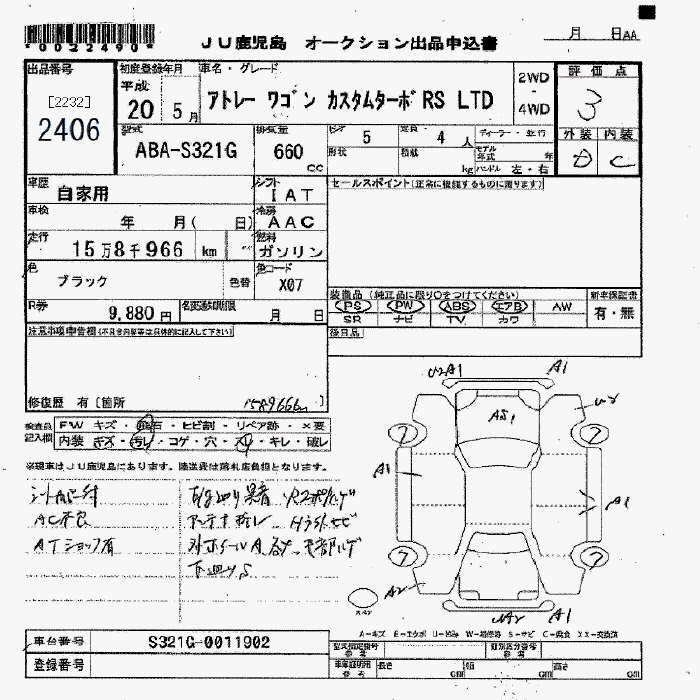 *00022490*
JU鹿児島 オークション出品申込書
月 日AA
出品番号
[2232]
2406
初度登録年月
平成
20 5月
車名・グレード
アトレー ワゴン カスタムターボ RS LTD
2WD
4WD
評価点
3
外装 内装
D C
型式
ABA-S321G
排気量
660
cc
ドア 5
定員 4人
ディーラー・並行
形状
積載 kg
モデル年式 年
ハンドル 左・右
車歴
自家用
シフト
IAT
車検
年 月( 日)
冷房
AAC
走行
15万8千966 km
燃料
ガソリン
色
ブラック
色替
色コード
X07
R券
9,880円
名変通知期限
月 日
セールスポイント(正常に機能するものに限ります)
装備品 (純正品に限り○をつけてください)
PS PW ABS エアB AW
SR ナビ TV カワ
新車保証書
有・無
後日品
注意事項申告欄(不具合内容等は具体的に記入して下さい)
修復歴 有〔箇所
158966km
検査員
記入欄
FW キズ・飛石・ヒビ割・リペア跡・×要
内装 キズ・汚レ・コゲ・穴・スレ・キレ・破レ
※現車はJU鹿児島にあります。陸送費は落札店負担となります。
シートカバー付
AC不良
ATショック有
下廻りS
U2 A1
A1
AS1
U2
A1
A1
A2
A1
ア ア
ア ア
A-キズ E-エクボ U-凹み W-補修跡 S-サビ C-腐食 XX-交換済
車台番号
S321G-0011902
登録番号
型式指定番号
参考
類別区分番号
参考
車庫証明用
参考
長さ cm
幅 cm
高さ cm